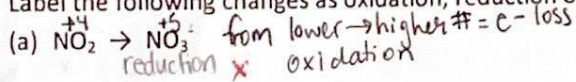 Label the following changes as oxidation, reduction
+4 +5
(a) NO₂ → NO₃⁻ from lower→higher # = e- loss
reduction x oxidation